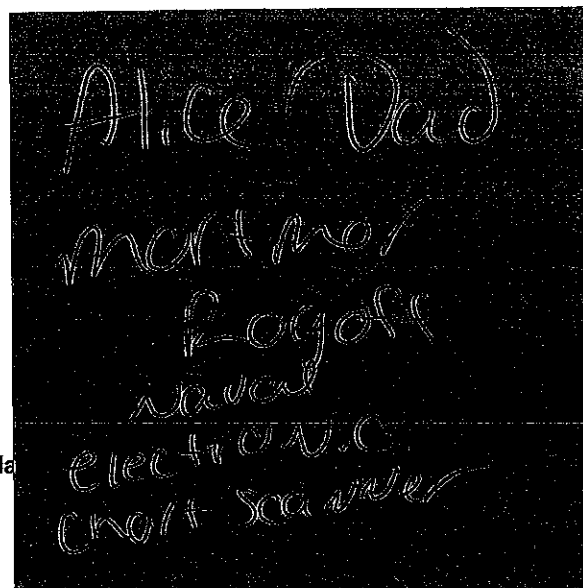 Alice (Dad)
mortmor
Rogoff
Naval
electroN.C
Chart Scanner
la